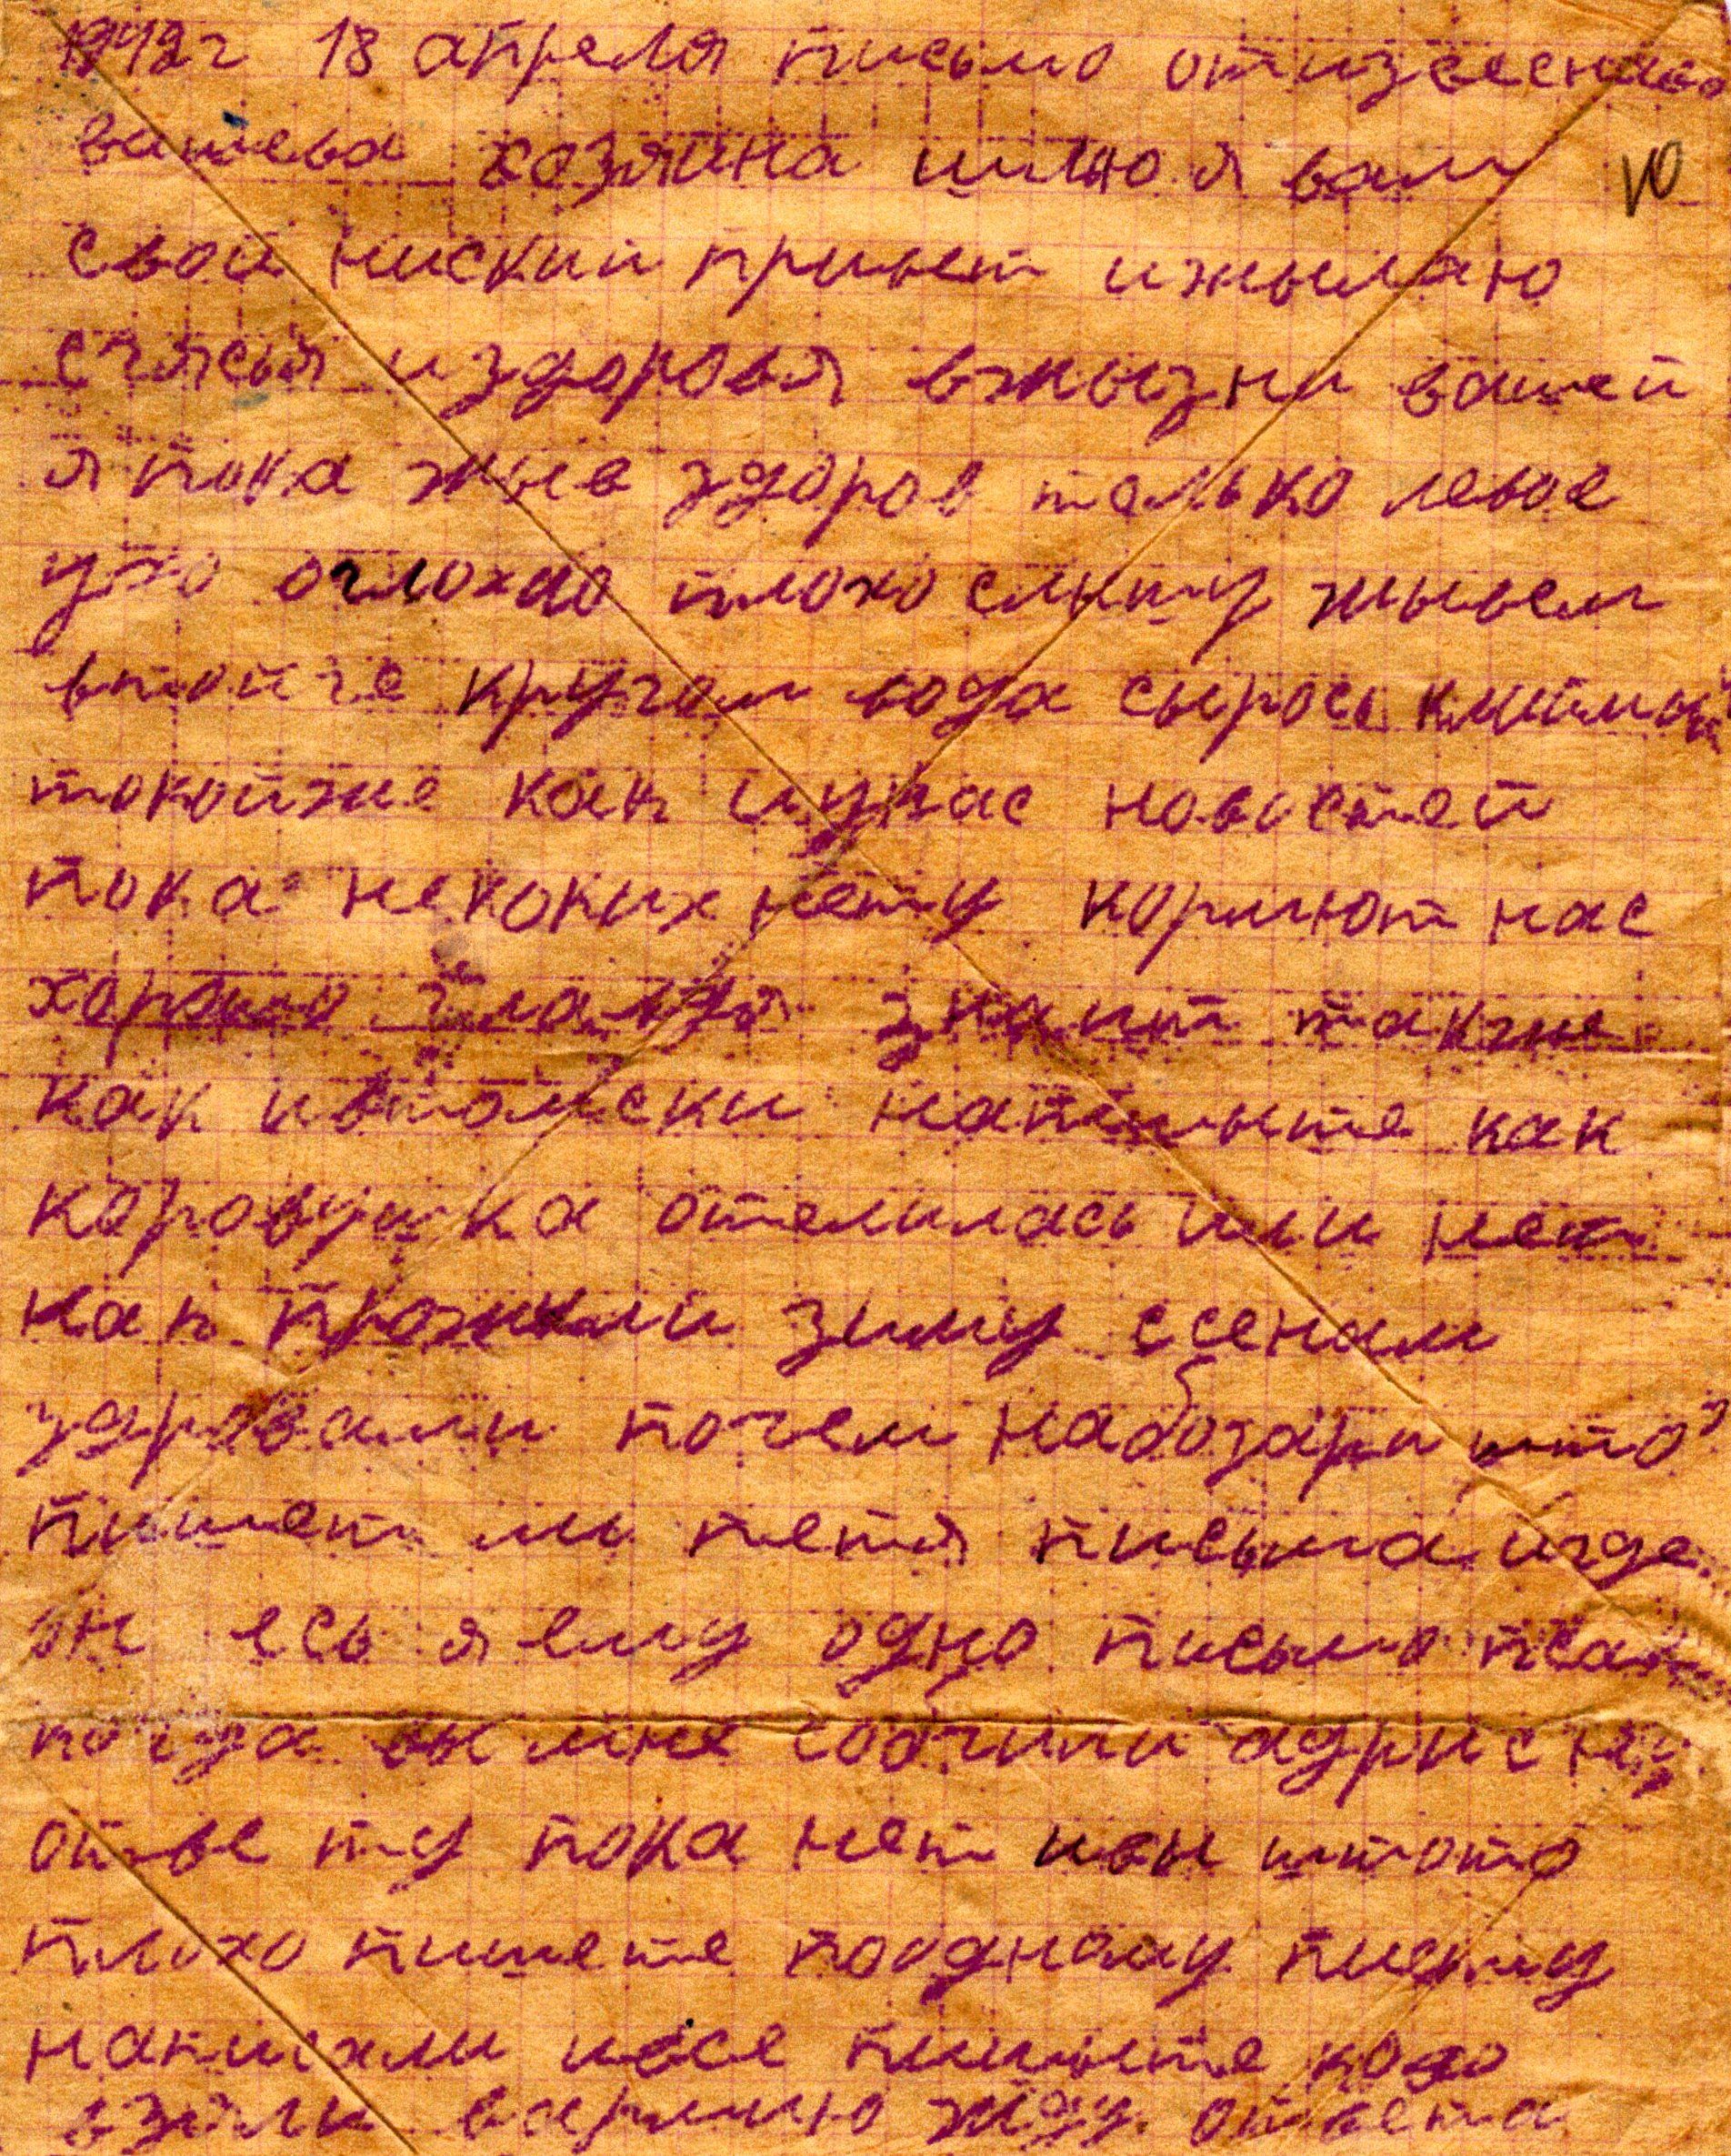 1942г 18 апреля письмо отизвесново
вашева хозяина шлю я вам
10
свой ниский привет ижылаю
счясья издоровья вжызни вашей
я пока жыв здоров только левое
ухо оглохло плохо слышу жывем
втойге кругом вода сырось климат
токойже как иунас новостей
пока некоких нету кормют нас
хорошо гландя знаит такжи
как ивтомски напишыте как
коровушка отелилась или нет
как прожили зиму ссенам
здровами почем набозари што
пишет ли петя письма игде
он есь я ему одно письмо псал
когда вы мне собчили адрис но
ответу пока нет ивы штото
плохо пишете поодному письму
написали ивсе пишыте ково
взяли вармию жду ответа